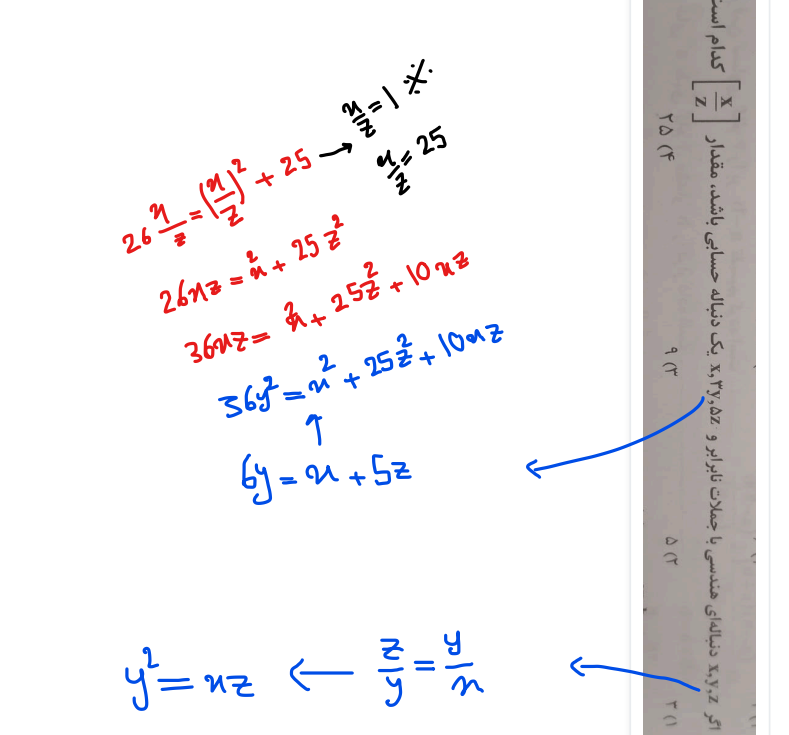 اگر x,y,z دنباله‌ای هندسی با جملات نابرابر و x,۳y,۵z یک دنباله حسابی باشد، مقدار [x/z] کدام است
۱) ۳ ۲) ۵ ۳) ۹ ۴) ۲۵
x/z = 1 ×
x/z = 25
26 x/z = (x/z)² + 25 →
26xz = x² + 25z²
36xz = x² + 25z² + 10xz
36y² = x² + 25z² + 10xz
↑
6y = x + 5z ←
y² = xz ← z/y = y/x ←